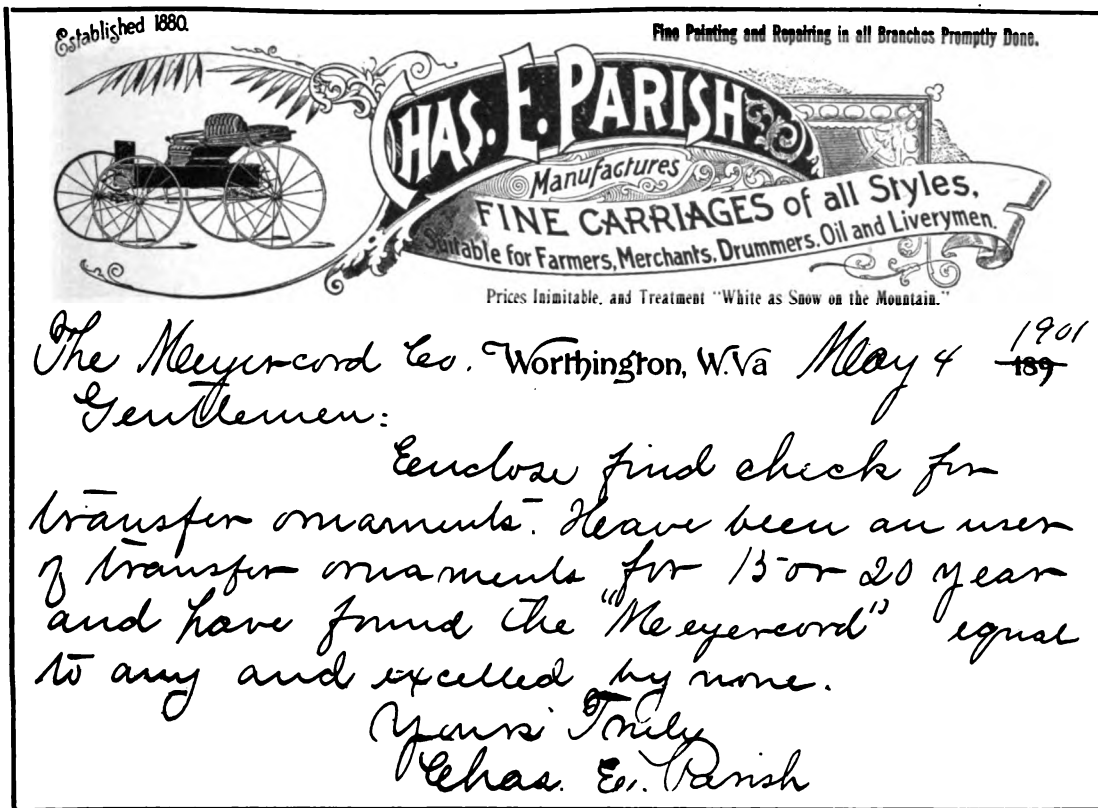 Established 1880.
Fine Painting and Repairing in all Branches Promptly Done.
CHAS. E. PARISH
Manufactures
FINE CARRIAGES of all Styles,
Suitable for Farmers, Merchants, Drummers, Oil and Liverymen.
Prices Inimitable, and Treatment "White as Snow on the Mountain."
The Meyercord Co. Worthington, W.Va May 4 1901 189
Gentlemen:
Enclose find check for
transfer ornaments. Have been an user
of transfer ornaments for 15 or 20 year
and have found the "Meyercord" equal
to any and excelled by none.
Yours Truly
Chas. E. Parish